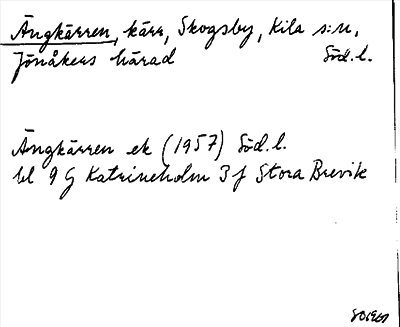 Ängkärren, kärr, Skogsby, Kila s:n,
Jönåkers härad Söd.l.
Ängkärren ek (1957) Söd.l.
bl 9 G Katrineholm 3 f Stora Brevik